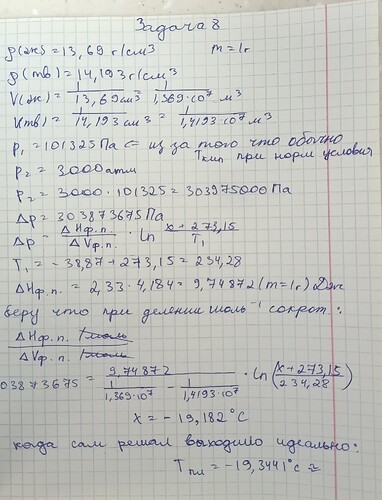 Задача 8
ρ(ж) = 13,69 г/см³ m = 1г
ρ(тв) = 14,193 г/см³
V(ж) = 1/13,69 см³ = 1/1,369·10⁷ м³
V(тв) = 1/14,193 см³ = 1/1,4193·10⁷ м³
P₁ = 101325 Па ⇐ из за того что обычно
Tкип при норм условия
P₂ = 3000 атм
P₂ = 3000 · 101325 = 303975000 Па
Δp = 303873675 Па
Δp = ΔHф.п./ΔVф.п. · ln (x + 273,15)/T₁
T₁ = -38,87 + 273,15 = 234,28
ΔHф.п. = 2,33 · 4,184 = 9,74872 (m = 1г) Дж
беру что при делении моль⁻¹ сокрот.:
ΔHф.п. 1 моль / ΔVф.п. 1 моль
03873675 = 9,74872 / (1/1,369·10⁷ - 1/1,4193·10⁷) · ln((x + 273,15)/234,28)
x = -19,182°C
когда сам решал выходило идеально:
Tпл = -19,3441°C ≈